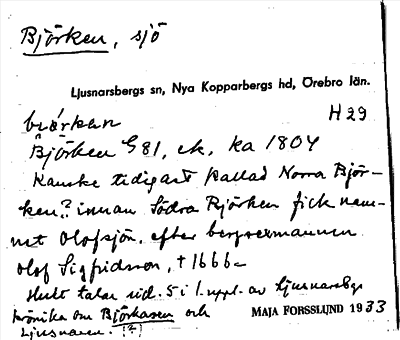 Björken, sjö
Ljusnarsbergs sn, Nya Kopparbergs hd, Örebro län.
H 29
Björken G 81, ek, ka 1804
Kanske tidigast kallad Norra Björ-
ken? innan Södra Björken fick nam-
net Olofsjön, efter bergsmannen
Olof Sigfridsson, † 1666.
Hult talar sid. 5 i 1. uppl. av Ljusnarsbgs
krönika om Björkaren och
Ljusnaren. (?)
MAJA FORSSLUND 1933